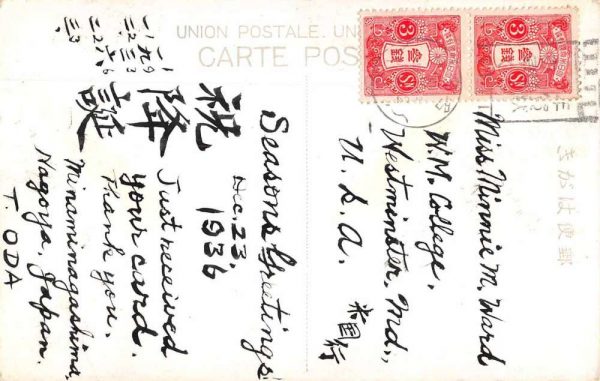 UNION POSTALE. UN
CARTE POS
きがは便郵
3 3
Miss Minnie M. Ward
W.M. College,
Westminster, Md.,
U.S.A.
米國行
Seasons Greetings
Dec. 23,
1936
祝降誕
Just received
your card.
Thank you.
Minaminagashima,
Nagoya, Japan.
T. ODA